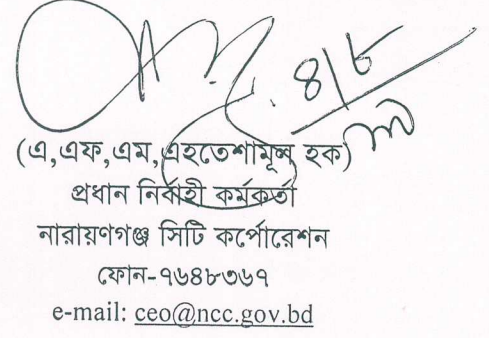 ৪/৮
(এ,এফ,এম,এহতেশামূল হক)
প্রধান নির্বাহী কর্মকর্তা
নারায়ণগঞ্জ সিটি কর্পোরেশন
ফোন-৭৬৪৮৩৬৭
e-mail: ceo@ncc.gov.bd